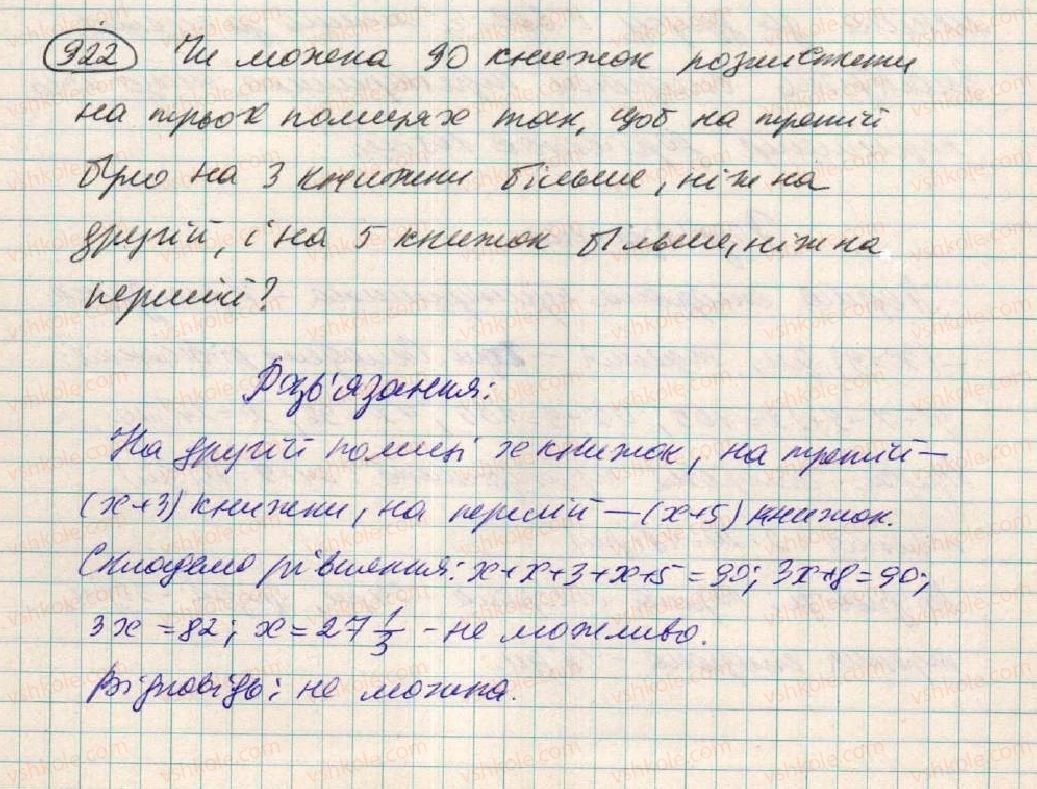 922 Чи можна 90 книжок розмістити
на трьох полицях так, щоб на третій
було на 3 книжки більше, ніж на
другій, і на 5 книжок більше, ніж на
першій?
Розв'язання:
На другій полиці x книжок, на третій —
(x+3) книжки, на першій — (x+5) книжок.
Складемо рівняння: x+x+3+x+5=90; 3x+8=90;
3x=82; x=27 1/3 - не можливо.
Відповідь: не можна.